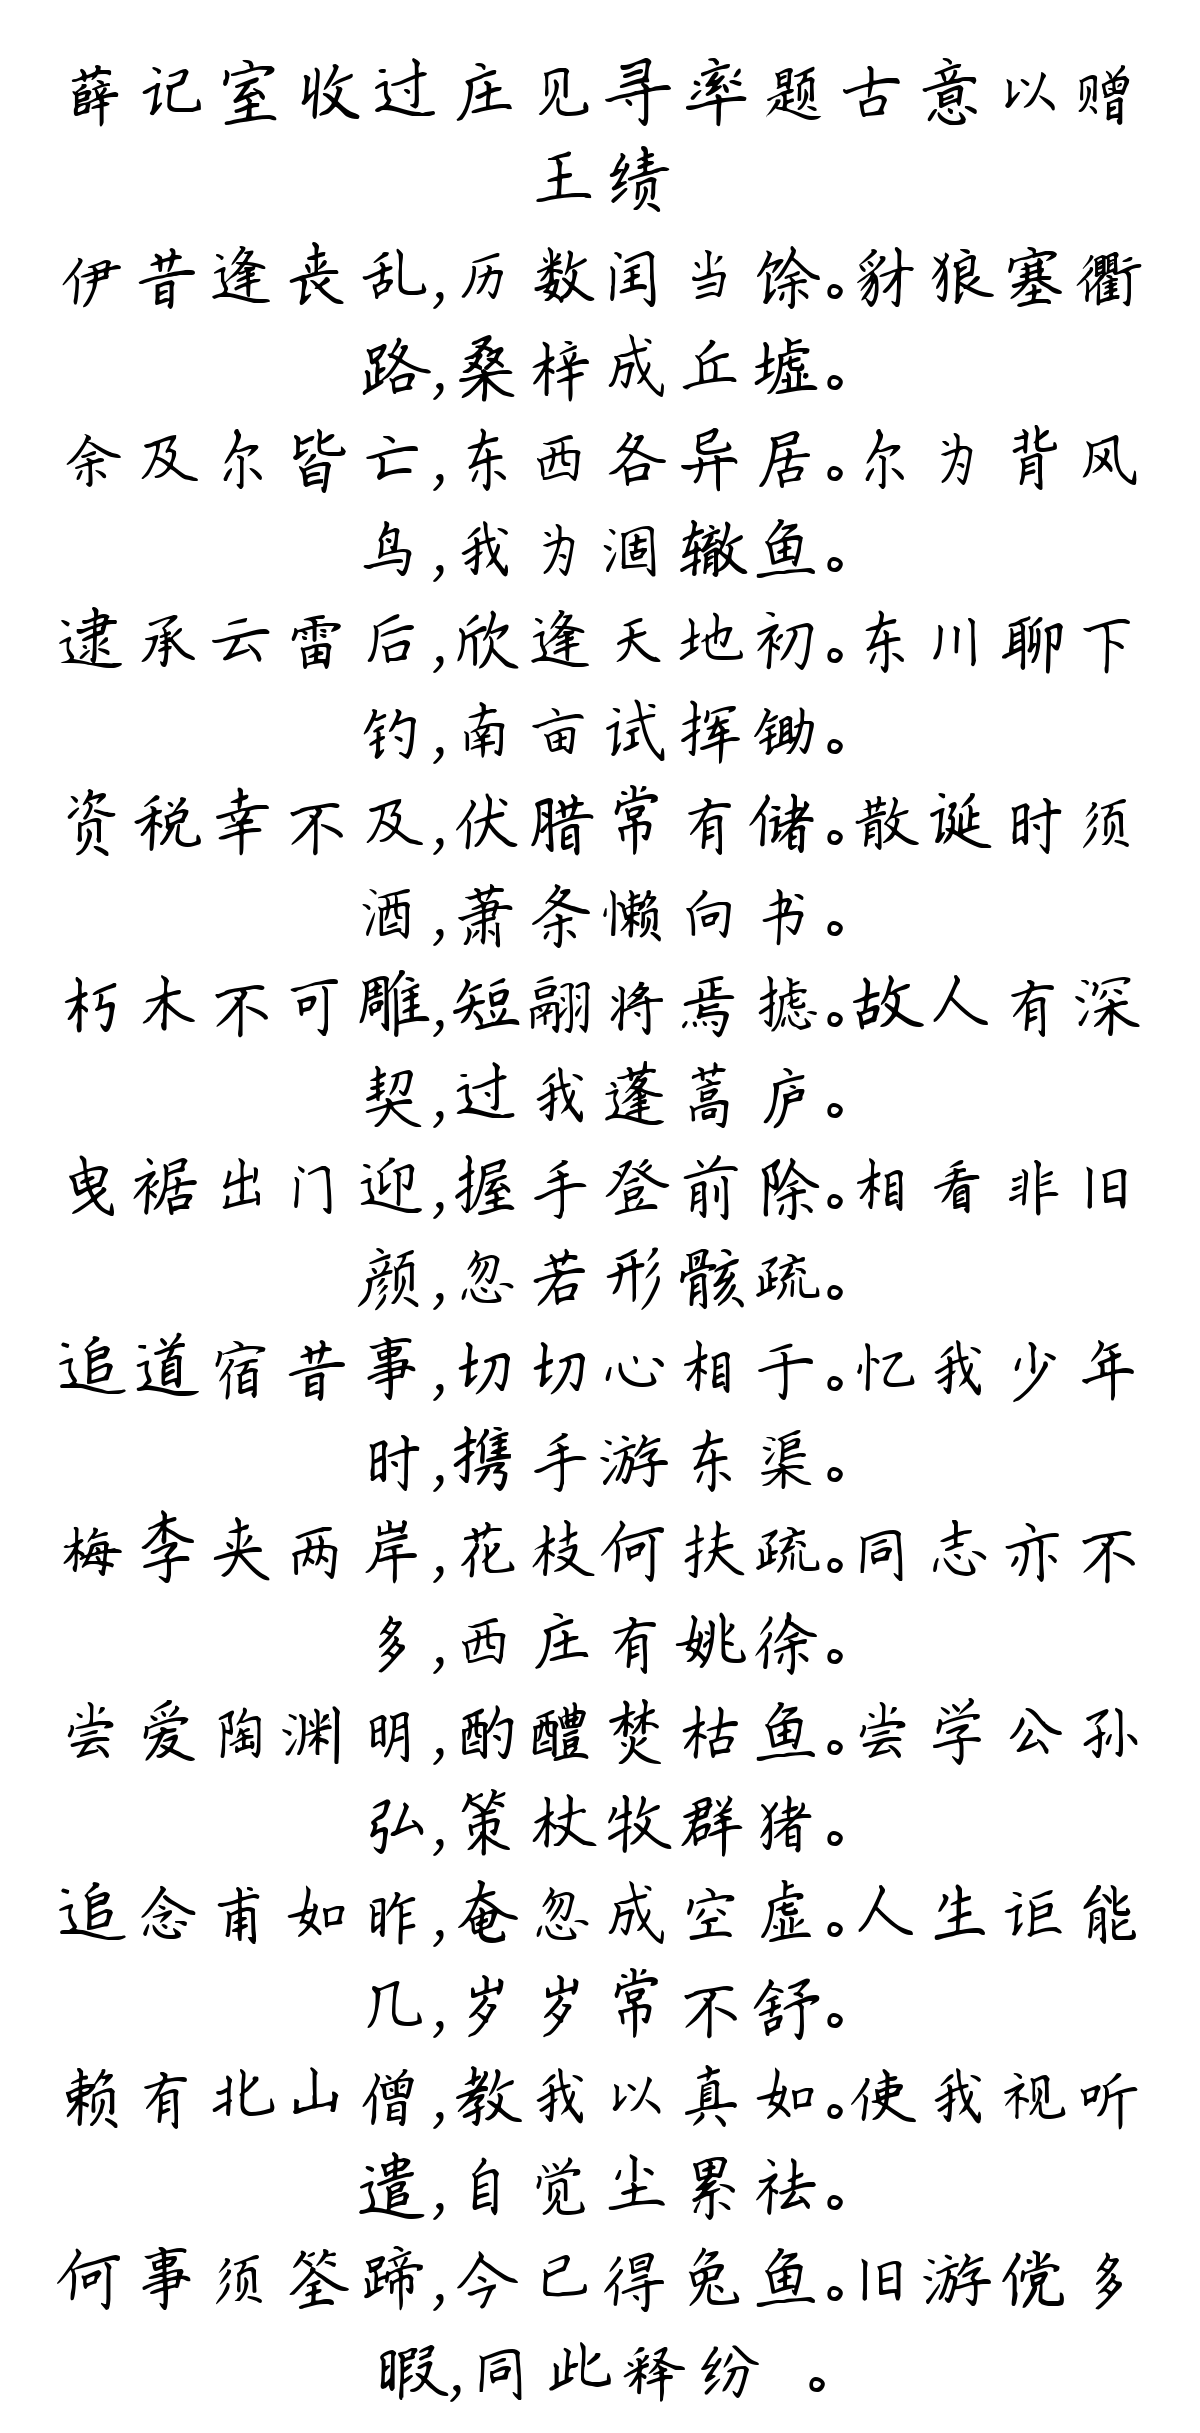 薛记室收过庄见寻率题古意以赠
王绩
伊昔逢丧乱,历数闰当馀。豺狼塞衢
路,桑梓成丘墟。
余及尔皆亡,东西各异居。尔为背风
鸟,我为涸辙鱼。
逮承云雷后,欣逢天地初。东川聊下
钓,南亩试挥锄。
资税幸不及,伏腊常有储。散诞时须
酒,萧条懒向书。
朽木不可雕,短翮将焉摅。故人有深
契,过我蓬蒿庐。
曳裾出门迎,握手登前除。相看非旧
颜,忽若形骸疏。
追道宿昔事,切切心相于。忆我少年
时,携手游东渠。
梅李夹两岸,花枝何扶疏。同志亦不
多,西庄有姚徐。
尝爱陶渊明,酌醴焚枯鱼。尝学公孙
弘,策杖牧群猪。
追念甫如昨,奄忽成空虚。人生讵能
几,岁岁常不舒。
赖有北山僧,教我以真如。使我视听
遣,自觉尘累祛。
何事须筌蹄,今已得兔鱼。旧游傥多
暇,同此释纷 。